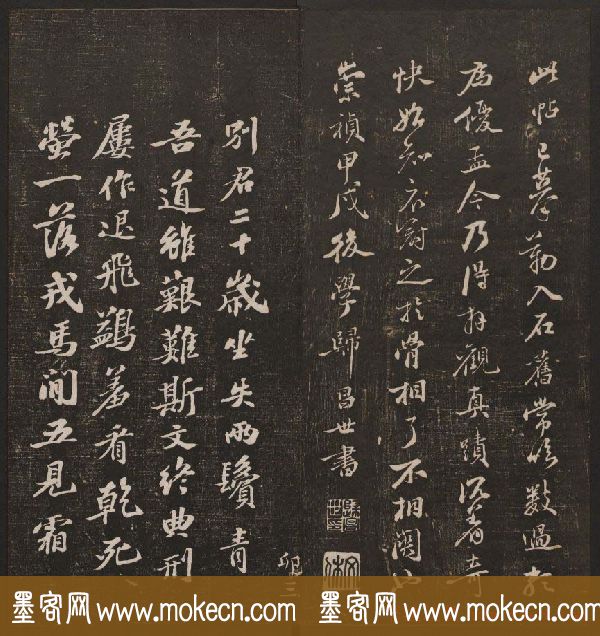 此帖已摹勒入石舊嘗臨數過於
為優孟今乃得拜觀真蹟沉着奇
快始知衣冠之於骨相了不相關
崇禎甲戌後學歸昌世書
卯三
別君二十歲坐失兩鬢青
吾道雖艱難斯文終典刑
屢作退飛鷁羞看乾死
螢一落戎馬間五見霜
墨客网 www.mokecn.com 墨客网 www.mokecn.com